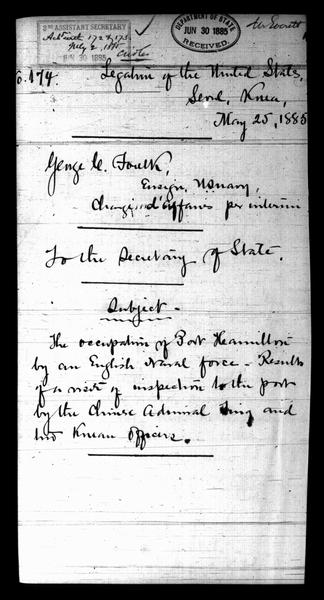 3RD ASSISTANT SECRETARY
Ack with 172 & 173
July 2, 1885
JUN 30 1885
DEPARTMENT OF STATE
JUN 30 1885
RECEIVED.
Mr Everett
o. 174.
Legation of the United States,
Seoul, Korea,
May 25, 1885
George C. Foulk,
Ensign, U.S. Navy,
Chargé d'Affaires per interim
To the Secretary of State.
Subject.
The occupation of Port Hamilton
by an English Naval force - Results
of a visit of inspection to the port
by the Chinese Admiral Ting and
two Korean officers.